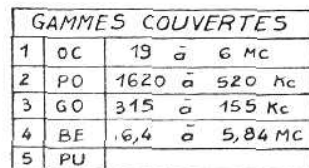 GAMMES COUVERTES
1 OC 19 à 6 MC
2 PO 1620 à 520 Kc
3 GO 315 à 155 Kc
4 BE 6,4 à 5,84 MC
5 PU